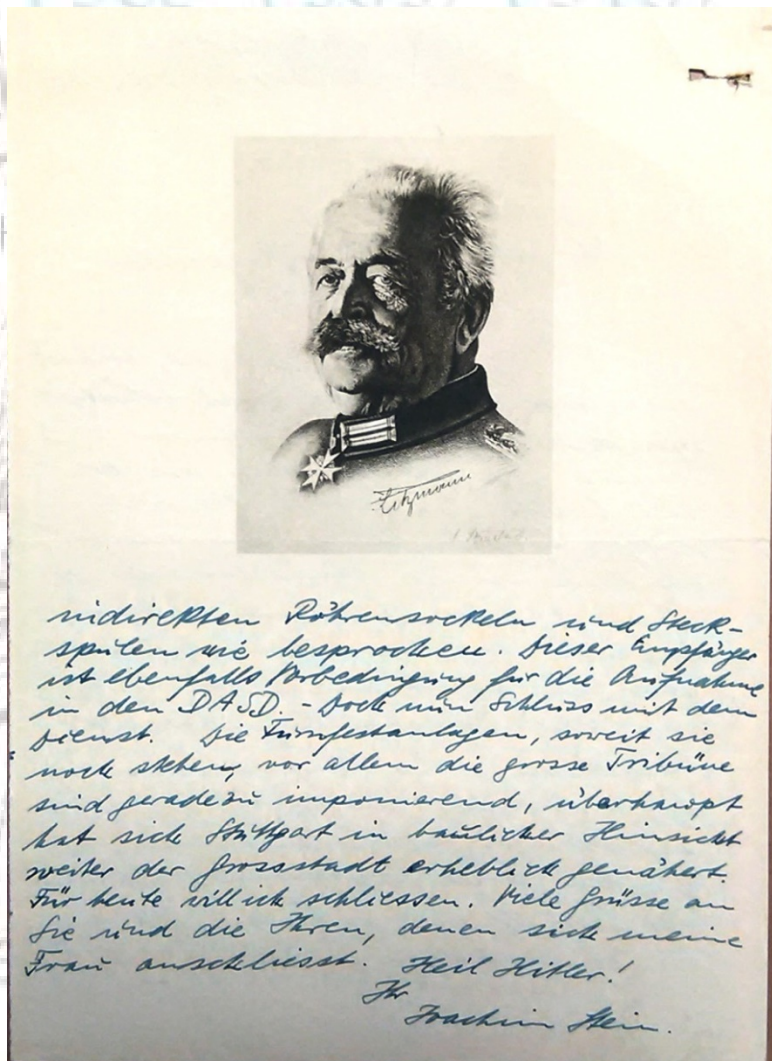 Litzmann
indirekten Röhrensockeln und Steck-
spulen wie besprochen. Dieser Empfänger
ist ebenfalls Vorbedingung für die Aufnahme
in den DASD. - Doch nun Schluss mit dem
Dienst. Die Turnfestanlagen, soweit sie
noch stehen, vor allem die grosse Tribüne
sind geradezu imponierend, überhaupt
hat sich Stuttgart in baulicher Hinsicht
weiter der Grossstadt erheblich genähert.
Für heute will ich schliessen. Viele Grüsse an
Sie und die Ihren, denen sich meine
Frau anschliesst. Heil Hitler!
Ihr
Joachim Stein.